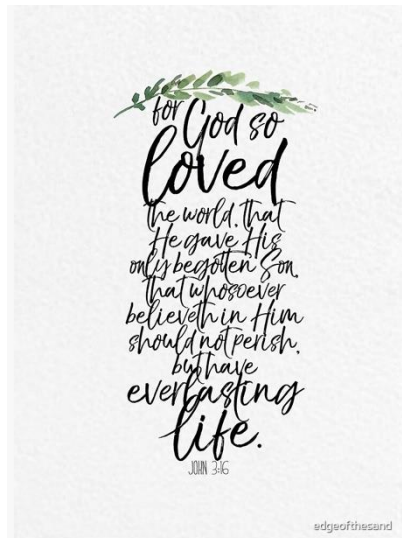 for God so
loved
the world, that
He gave His
only begotten Son,
that whosoever
believeth in Him
should not perish,
but have
everlasting
life.
JOHN 3:16
edgeofthesand